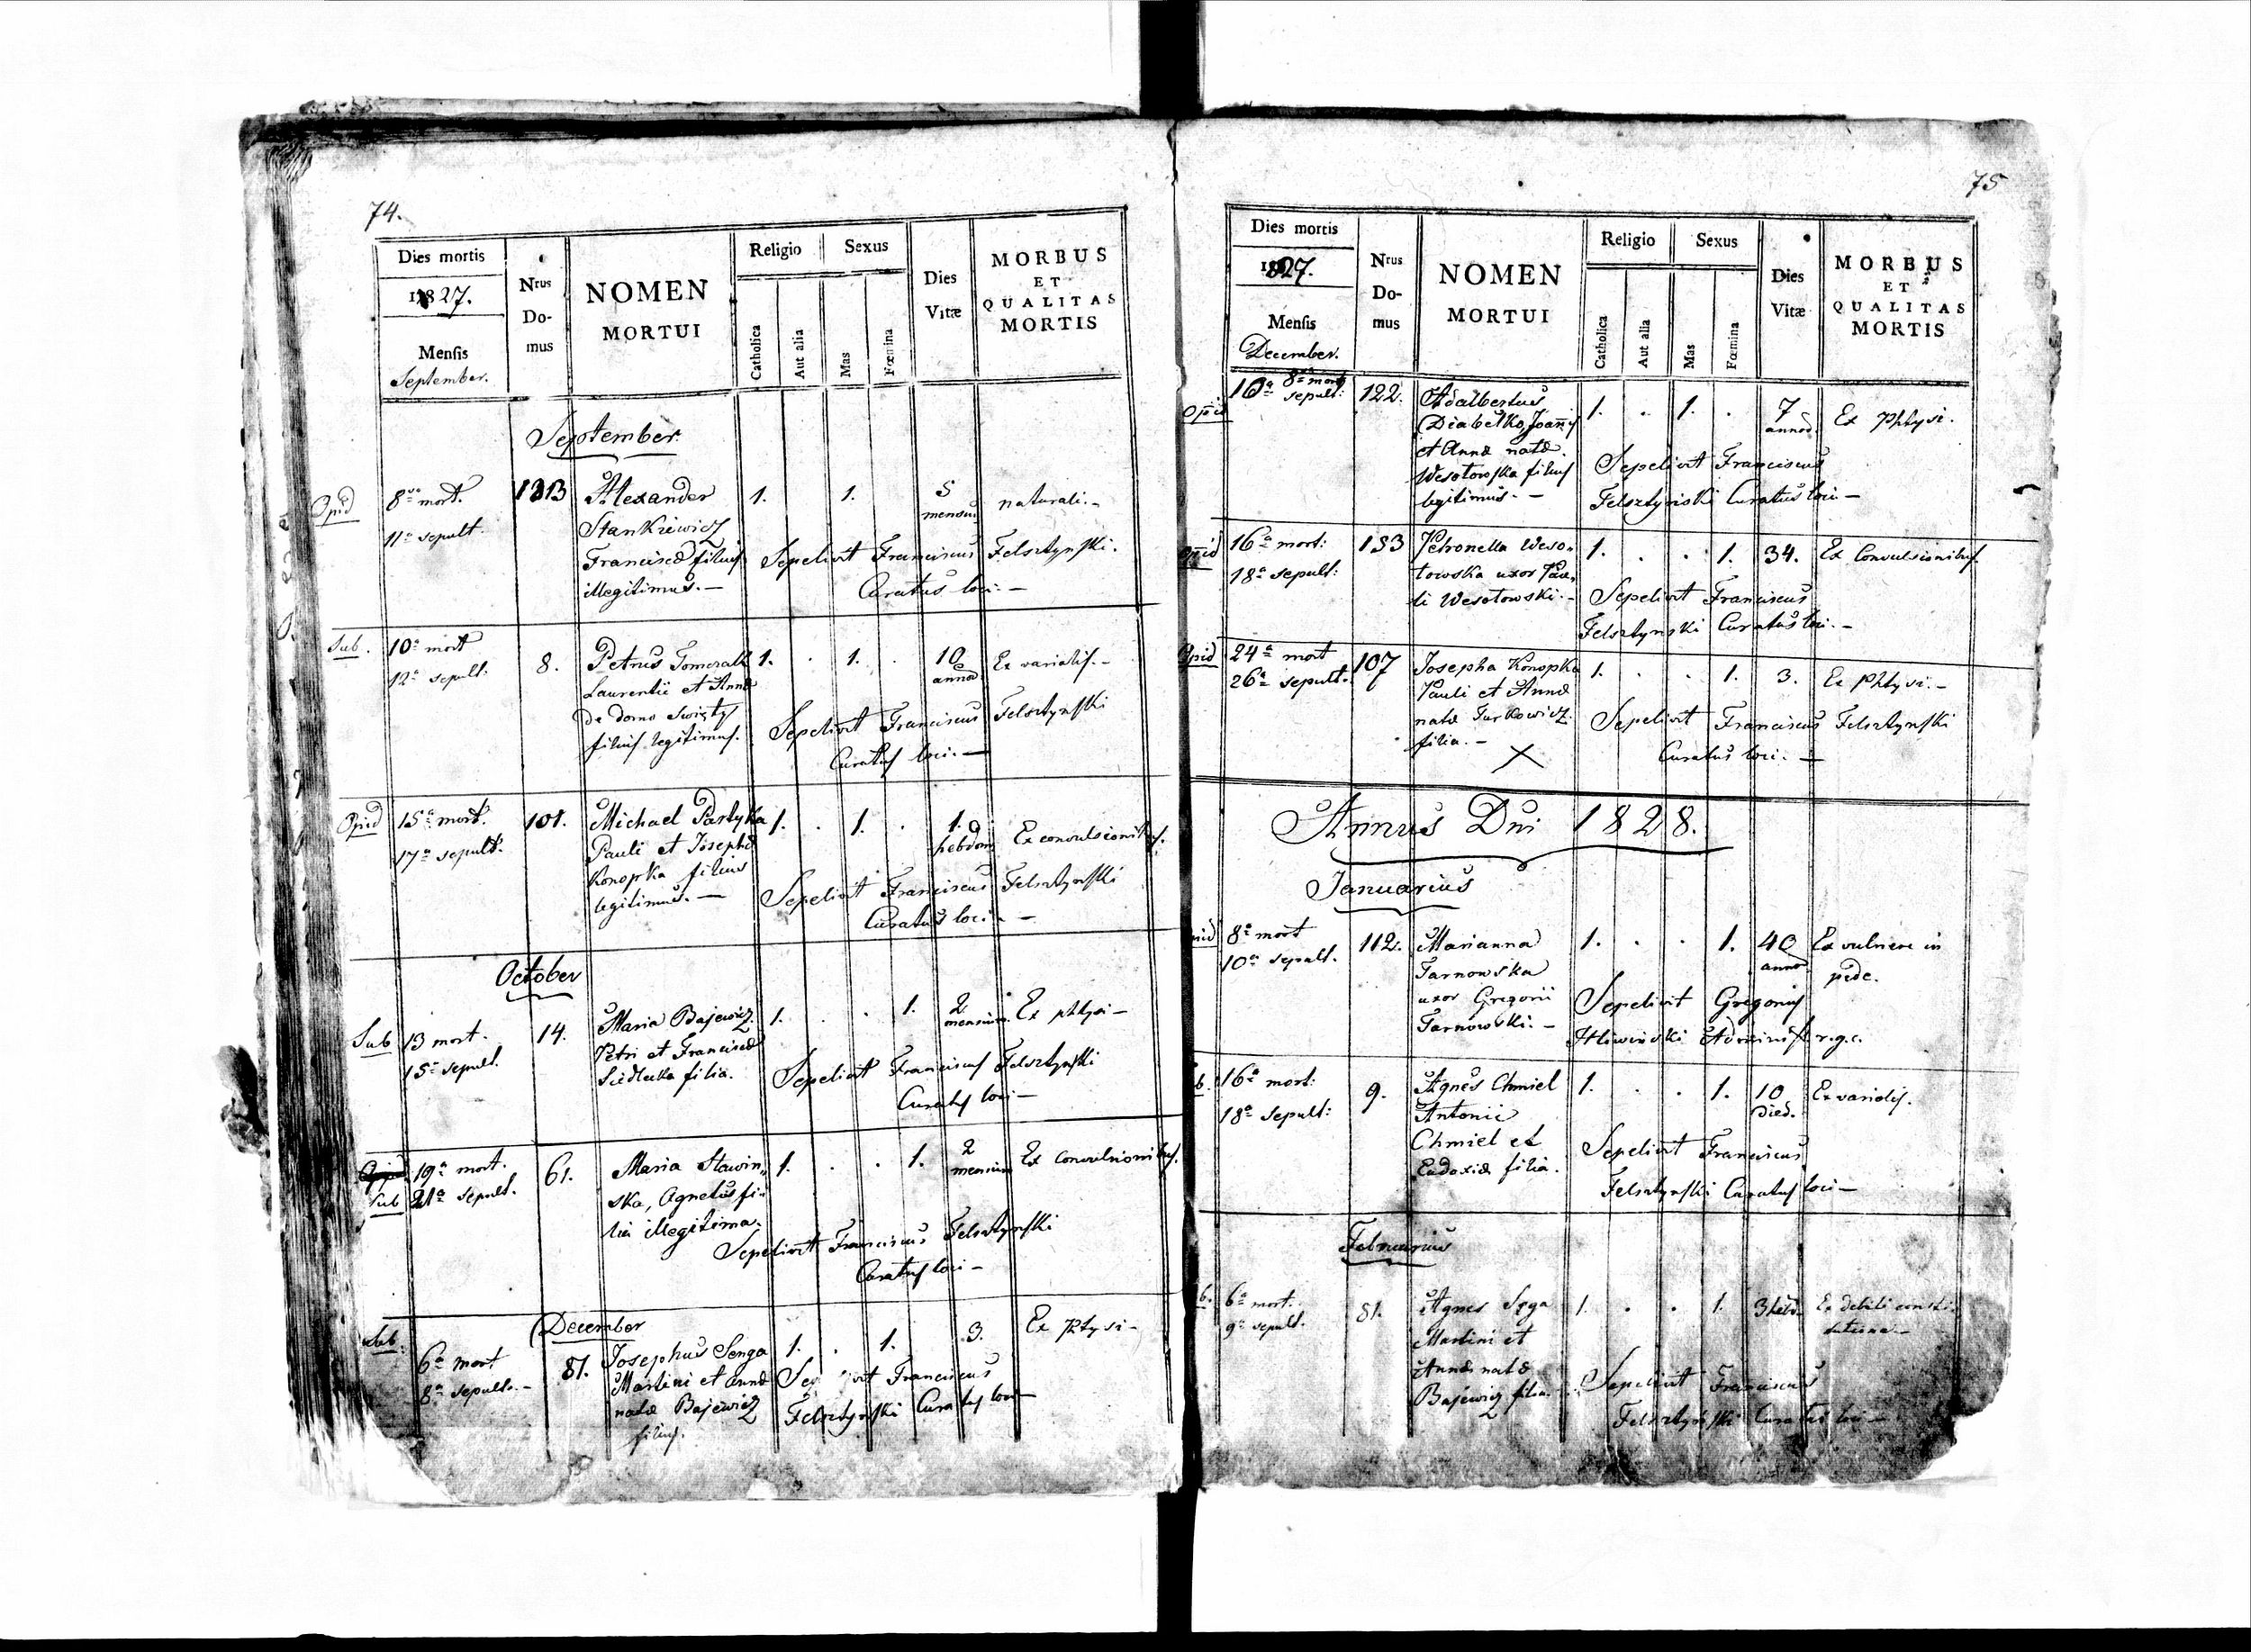 74.
Dies mortis
1827.
Mensis
September.
Nrus Do-mus
NOMEN
MORTUI
Religio
Catholica
Aut alia
Sexus
Mas
Fœmina
Dies
Vitæ
MORBUS
ET
QUALITAS
MORTIS
September
Opid 8va mort. Alexander 1. 1. 5 naturali.-
mensiu
11a sepult. Stankiewicz
Franciscæ filius Sepelivit Franciscus Felsztynski.
illegitimus.- Curatus loci.-
Sub. 10a mort 8. Petrus Tomczak 1. . 1. . 10 Ex variolis.-
12a sepult: Laurentii et Annæ annor
de domo Święty Sepelivit Franciscus Felsztynski
filius legitimus. Curatus loci.-
Opid 15a mort. 101. Michael Partyka 1. . 1. . 1. Ex convulsionibus.
17a sepult. Pauli et Josephæ hebdom
Konopka filius Sepelivit Franciscus Felsztynski
legitimus.- Curatus loci.-
October
Sub 13 mort. 14. Maria Bajewicz 1. . . 1. 2 Ex phtysi-
mensium
15a sepult. Petri et Franciscæ
Siedlecka filia. Sepelivit Franciscus Felsztynski
Curatus loci-
19a mort. 61. Maria Stawin- 1. . . 1. 2 Ex convulsionibus.
mensium
Sub 21a sepult. ska, Agnetis fi-
lia illegitima.
Sepelivit Franciscus Felsztynski
Curatus loci-
December
Sub. 6a mort 81. Josephus Senga 1. . 1. 3. Ex Phtysi-
8a sepult.- Martini et Annæ Sepelivit Franciscus
natæ Bajewicz Felsztynski Curatus loci-
filius.
75
Dies mortis
1827.
Mensis
December.
Nrus Do-mus
NOMEN
MORTUI
Religio
Catholica
Aut alia
Sexus
Mas
Fœmina
Dies
Vitæ
MORBUS
ET
QUALITAS
MORTIS
8a mort
Opid 10a sepult: 122. Adalbertus 1. . 1. . 7 Ex Phtysi.
Diabełko, Joannis annor.
et Annæ natæ
Wesołowska filius Sepelivit Franciscus
legitimus.- Felsztyński Curatus loci-
Opid 16a mort: 133 Petronella Weso- 1. . . 1. 34. Ex Convulsionibus.
18a sepult: łowska uxor Pau-
li Wesołowski.- Sepelivit Franciscus
Felsztynski Curatus loci.-
Opid 24a mort 107 Josepha Konopka 1. . . 1. 3. Ex Phtysi.-
26a sepult. Pauli et Annæ
natæ Turkowicz Sepelivit Franciscus Felsztynski
filia.- Curatus loci.-
Annus Dni 1828.
Januarius
8a mort 112. Marianna 1. . . 1. 40 Ex vulnere in
10a sepult. Tarnowska annor pede.
uxor Gregorii Sepelivit Gregorius
Tarnowski.- r.g.c.
16a mort: 9. Agnes Chmiel 1. . . 1. 10 Ex variolis.
18a Sepult: Antonii Dieb.
Chmiel et Sepelivit Franciscus
Eudoxiæ filia. Felsztynski Curatus loci-
Februarius
6a mort. 81. Agnes Sęga 1. . . 1. 3 hebd. Ex debili consti-
9a sepult. Martini et tutione-
Annæ natæ Sepelivit Franciscus
Bajewicz filia. Felsztyński Curatus loci-